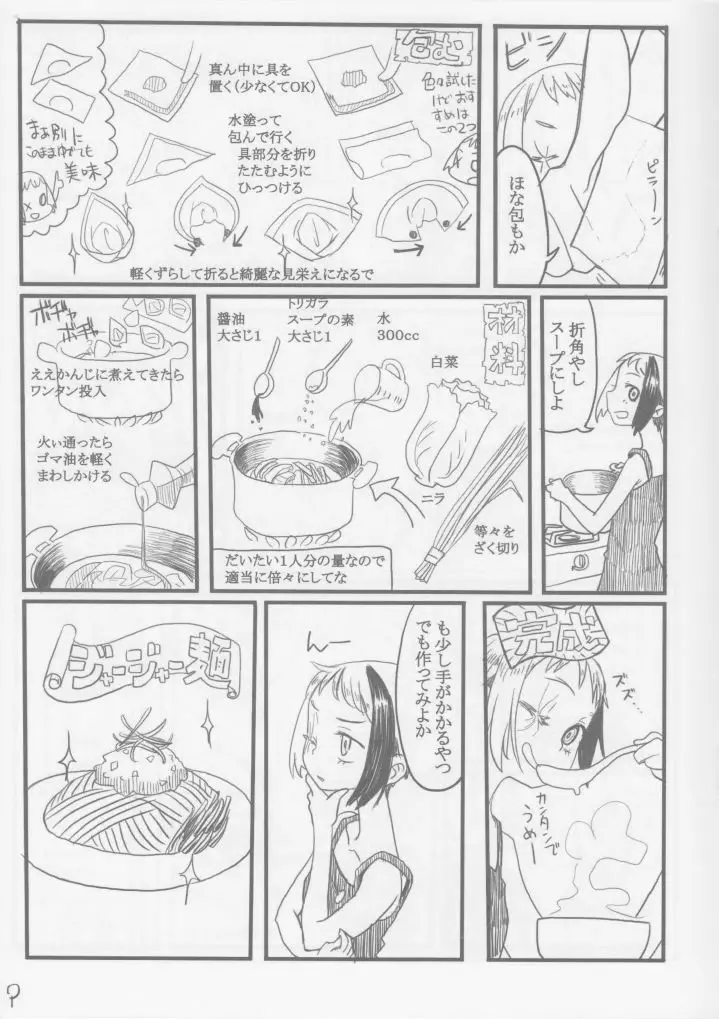 ビシ
ピラーン
ほな包もか
包む
色々試した
けどおす
すめは
この2つ
真ん中に具を
置く(少なくてOK)
水塗って
包んで行く
具部分を折り
たたむように
ひっつける
まあ別に
このままゆでても
美味
軽くずらして折ると綺麗な見栄えになるで
折角やし
スープにしよ
材料
水
300cc
トリガラ
スープの素
大さじ1
醤油
大さじ1
白菜
ニラ
等々を
ざく切り
だいたい1人分の量なので
適当に倍々にしてな
ボチャ
ボチャ
ええかんじに煮えてきたら
ワンタン投入
火ぃ通ったら
ゴマ油を軽く
まわしかける
完成
ズズ…
カンタンで
うめー
も少し手がかかるやつ
でも作ってみよか
んー
ジャージャー麺